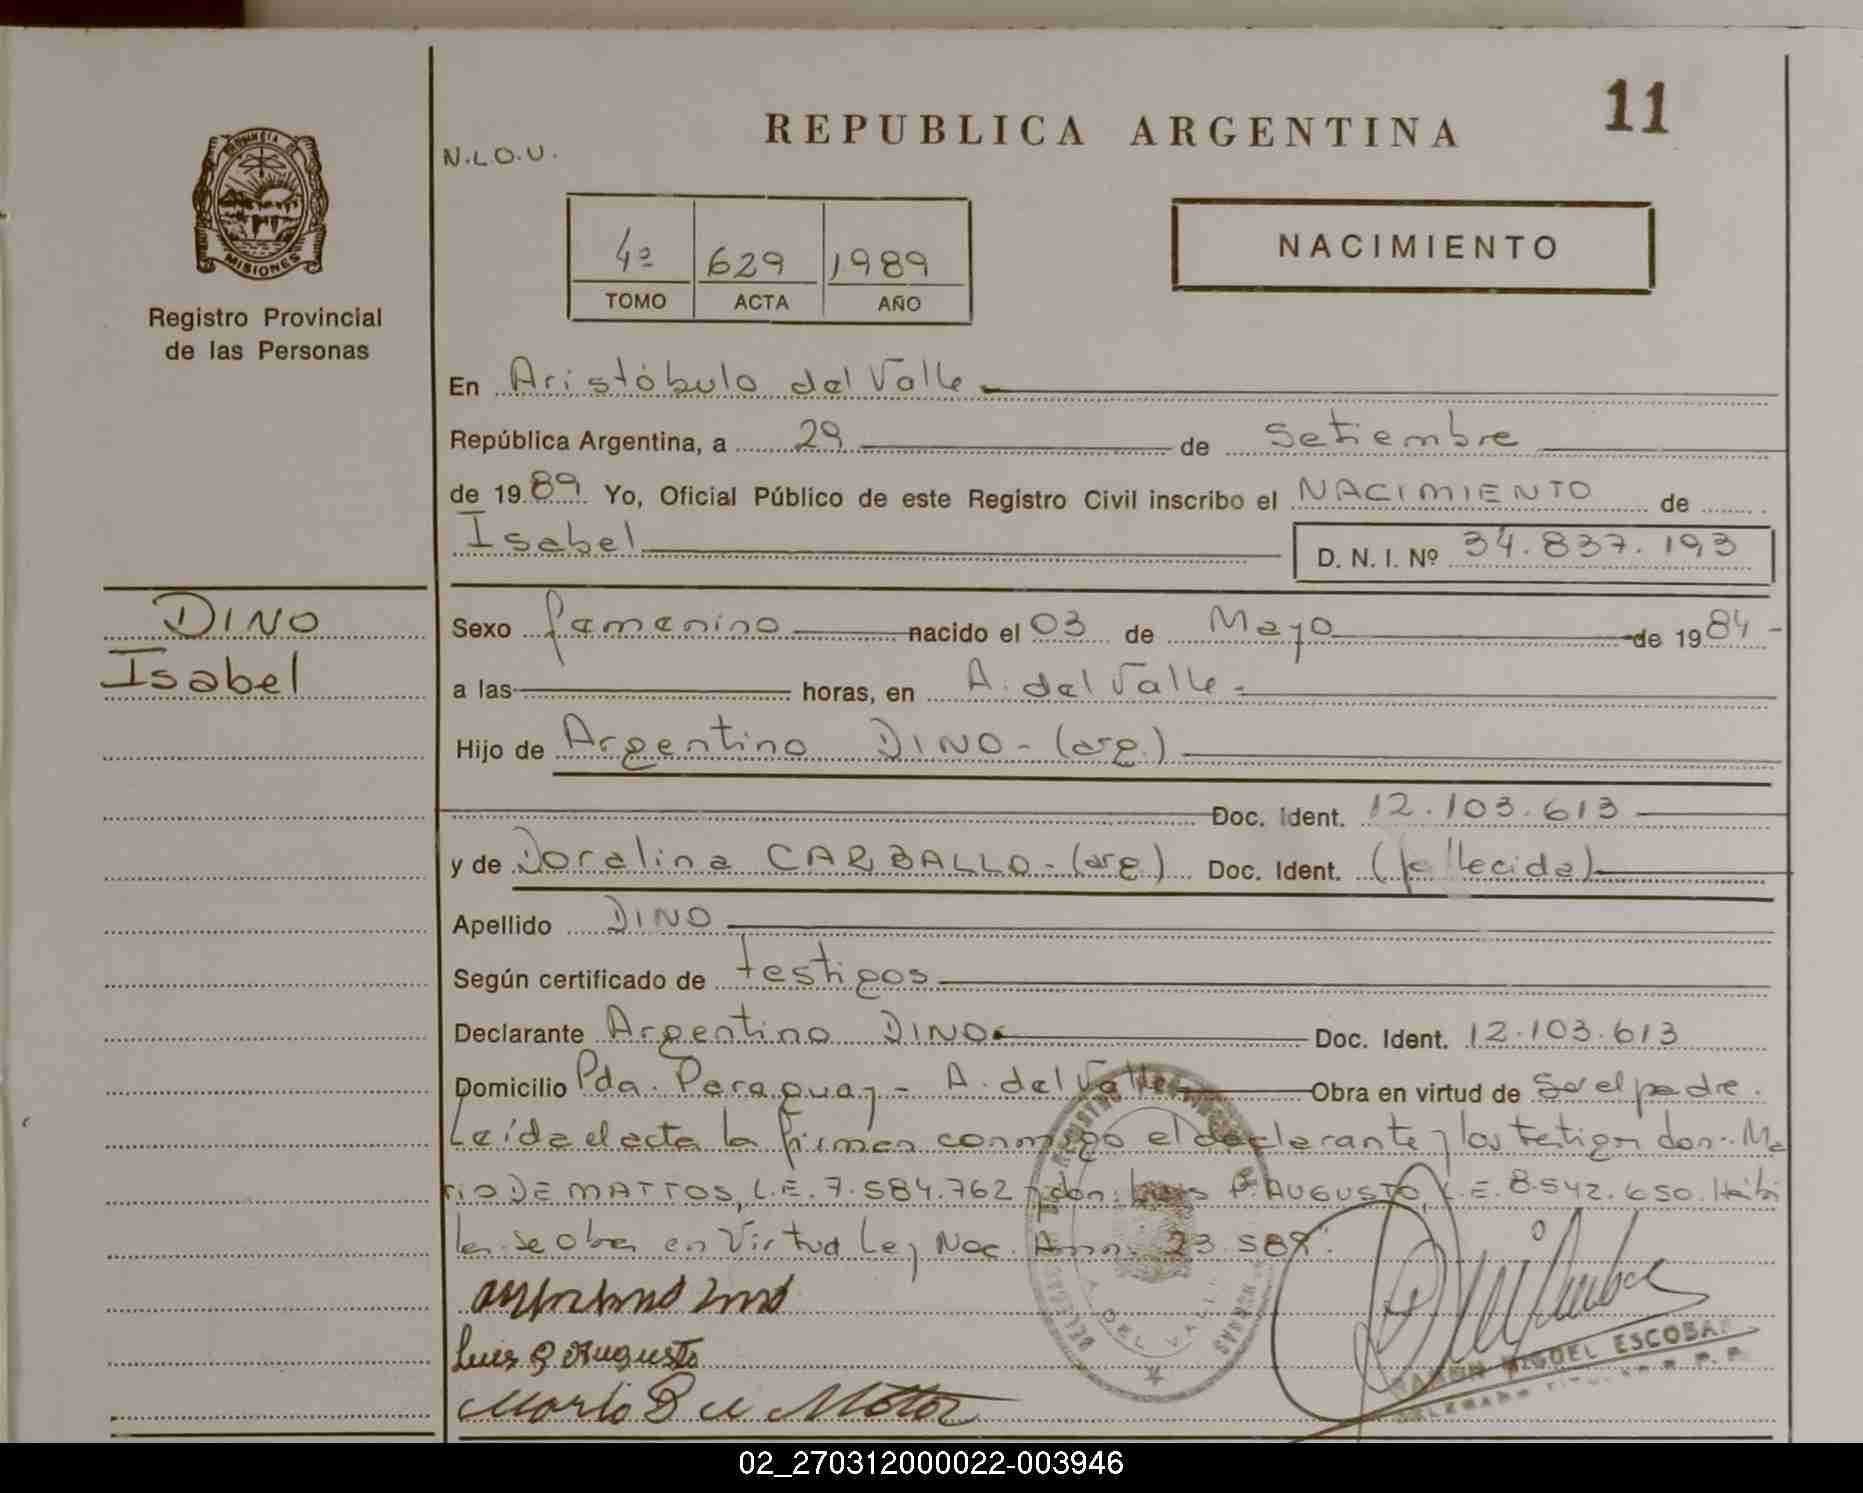 11
REPUBLICA ARGENTINA
N.L.O.U.
PROVINCIA DE
MISIONES
Registro Provincial
de las Personas
4º 629 1989
TOMO ACTA AÑO
NACIMIENTO
En Aristóbulo del Valle
República Argentina, a 29 de Setiembre
de 1989 Yo, Oficial Público de este Registro Civil inscribo el NACIMIENTO de
Isabel D. N. I. Nº 34.837.193
DINO
Isabel
Sexo femenino nacido el 03 de Mayo de 1984 -
a las horas, en A. del Valle -
Hijo de Argentino DINO - (arg.)
Doc. Ident. 12.103.613
y de Doralina CARBALLO - (arg) Doc. Ident. (fallecida)
Apellido DINO
Según certificado de testigos
Declarante Argentino DINO Doc. Ident. 12.103.613
Domicilio Pda. Paraguay - A. del Valle Obra en virtud de Ser el padre.
Leída el acta la firman conmigo el declarante y los testigos don: Ma
rio DE MATTOS, L.E. 7.584.762 y don: Luis P. AUGUSTO, L.E. 8.542.650. Hábi
les se obra en Virtud Ley Nac. Amn. 23.589.
Luis Augusto
Mario De Mottos
A. DEL VALLE
RAMÓN MIGUEL ESCOBAR
02_270312000022-003946